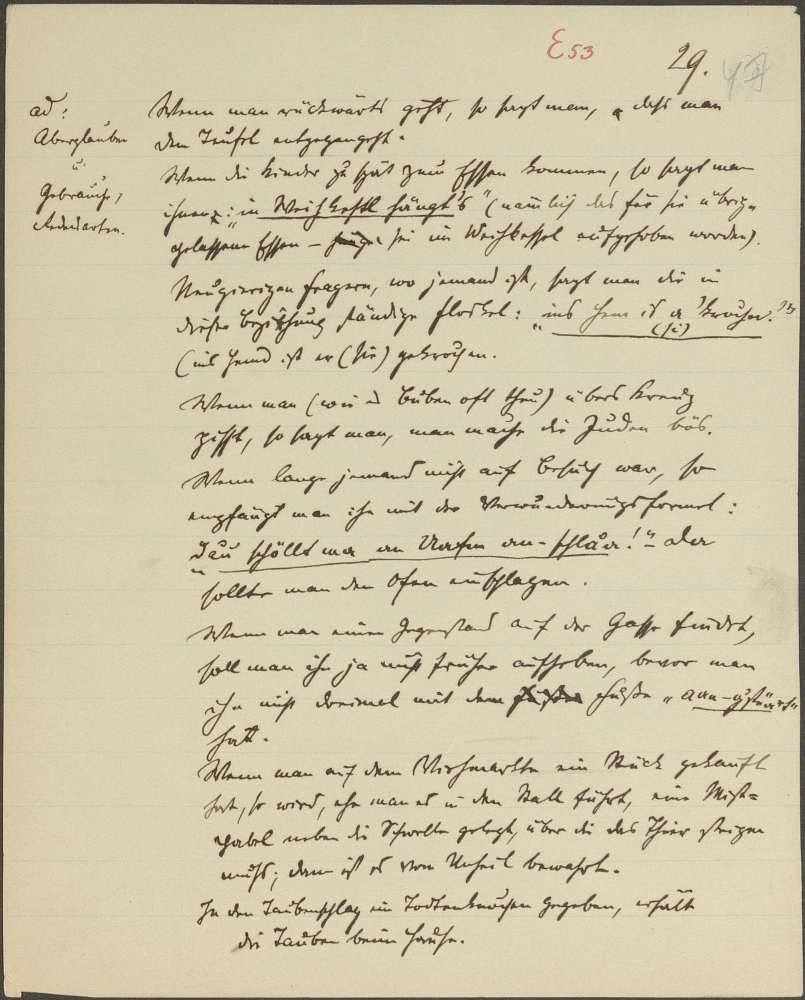 E53
29.
ad:
Aberglauben
u.
Gebräuche,
Redensarten.
Wenn man rückwärts geht, so sagt man, dass man
dem Teufel entgegengeht.
Wenn die Kinder zu spät zum Essen kommen, so sagt man
ihnen: "in Weihkessl hängt's" (nämlich das für sie übrig-
gelassene Essen – sei im Weihkessel aufgehoben worden).
Neugierigen Fragern, wo jemand ist, sagt man die in
dieser Beziehung ständige Floskel: "ins Hem is a 'krochn."
(si)
(ins Hemd ist er (sie) gekrochen.
Wenn man (wie es Buben oft thun) übers Kreuz
pisst, so sagt man, man mache die Juden bös.
Wenn lange jemand nicht auf Besuch war, so
empfängt man ihn mit der Verwunderungsformel:
"Dau söllt ma an Uafm ei-schlån!" – da
sollte man den Ofen einschlagen.
Wenn man einen Gegenstand auf der Gasse findet,
soll man ihn ja nicht früher aufheben, bevor man
ihn nicht dreimal mit dem Fuße
hat.
Wenn man auf dem Viehmarkte ein Stück gekauft
hat, so wird, ehe man es in den Stall führt, eine Mist-
gabel neben die Schwelle gelegt, über die das Thier steigen
muß; dann ist es vom Unheil bewahrt.
In den Taubenschlag ein Todtenknochen gegeben, erhält
die Tauben beim Hause.